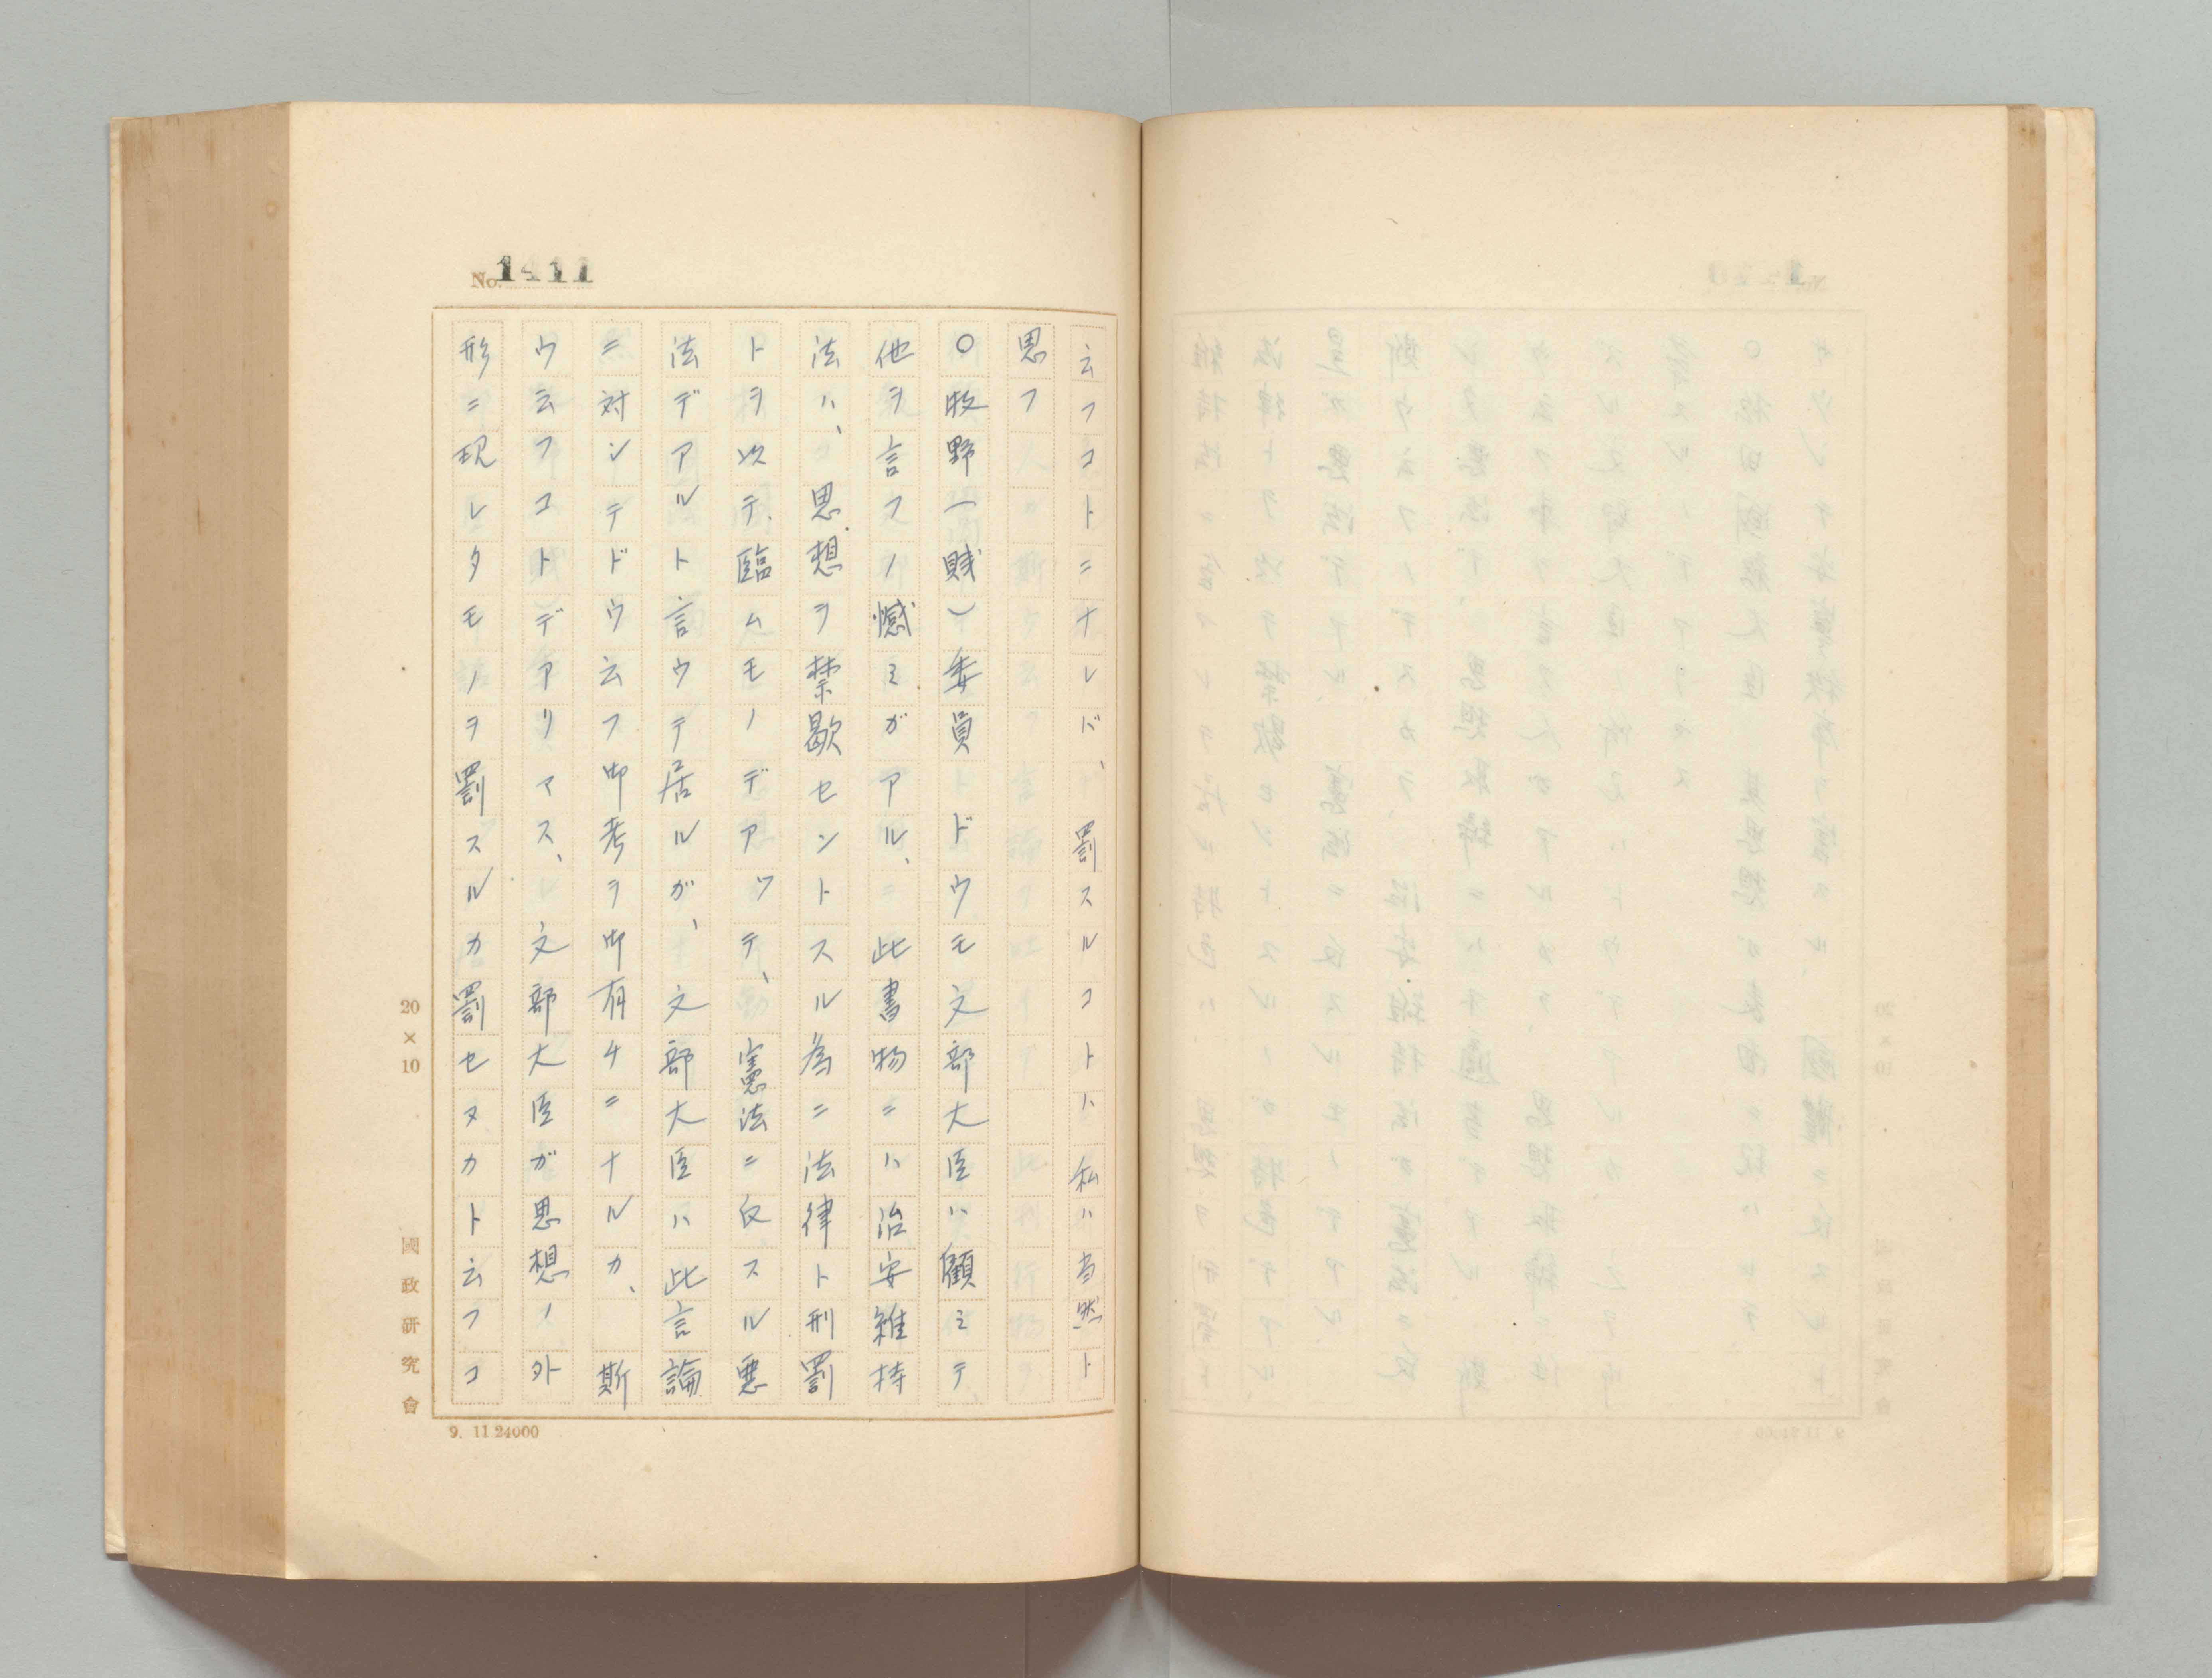 No. 1411
云フコトニナレバ、罰スルコトハ私ハ当然ト
思フ
○牧野(賤)委員 ドウモ文部大臣ハ顧ミテ
他ヲ言フノ憾ミガアル、此書物ニハ治安維持
法ハ、思想ヲ禁歇セントスル為ニ法律ト刑罰
トヲ以テ臨ムモノデアツテ、憲法ニ反スル悪
法デアルト言ウテ居ルガ、文部大臣ハ此言論
ニ対シテドウ云フ御考ヲ御有チニナルカ、斯
ウ云フコトデアリマス、文部大臣ガ思想ノ外
形ニ現レタモノヲ罰スルカ罰セヌカト云フコ
20×10
國政研究會
9. 11 24000